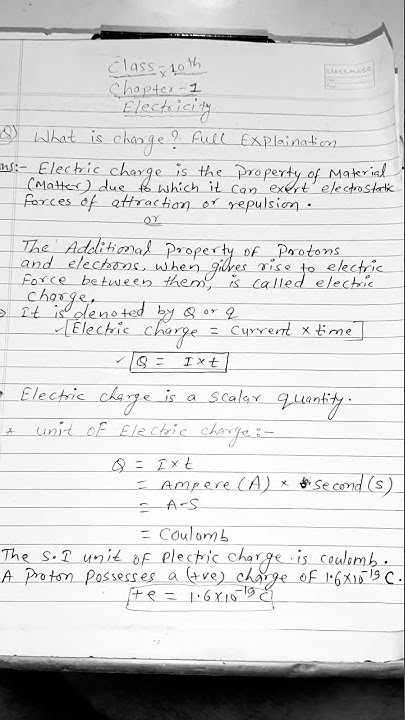 Class - 10th
CLASSMATE
Chapter - 1
Electricity
Q) What is charge? Full Explaination
Ans:- Electric charge is the Property of Material
(Matter) due to which it can exert electrostatic
Forces of attraction or repulsion.
or
The Additional Property of Protons
and electrons, when gives rise to electric
Force between them, is called electric
charge.
It is denoted by Q or q
✓ Electric charge = current × time
✓ Q = I × t
Electric charge is a scalar quantity.
* unit of Electric charge:-
Q = I × t
= Ampere (A) × second (s)
= A-S
= Coulomb
The S.I unit of Electric charge is coulomb.
A Proton Possesses a (+ve) charge of 1.6×10⁻¹⁹ C.
+e = 1.6×10⁻¹⁹ C